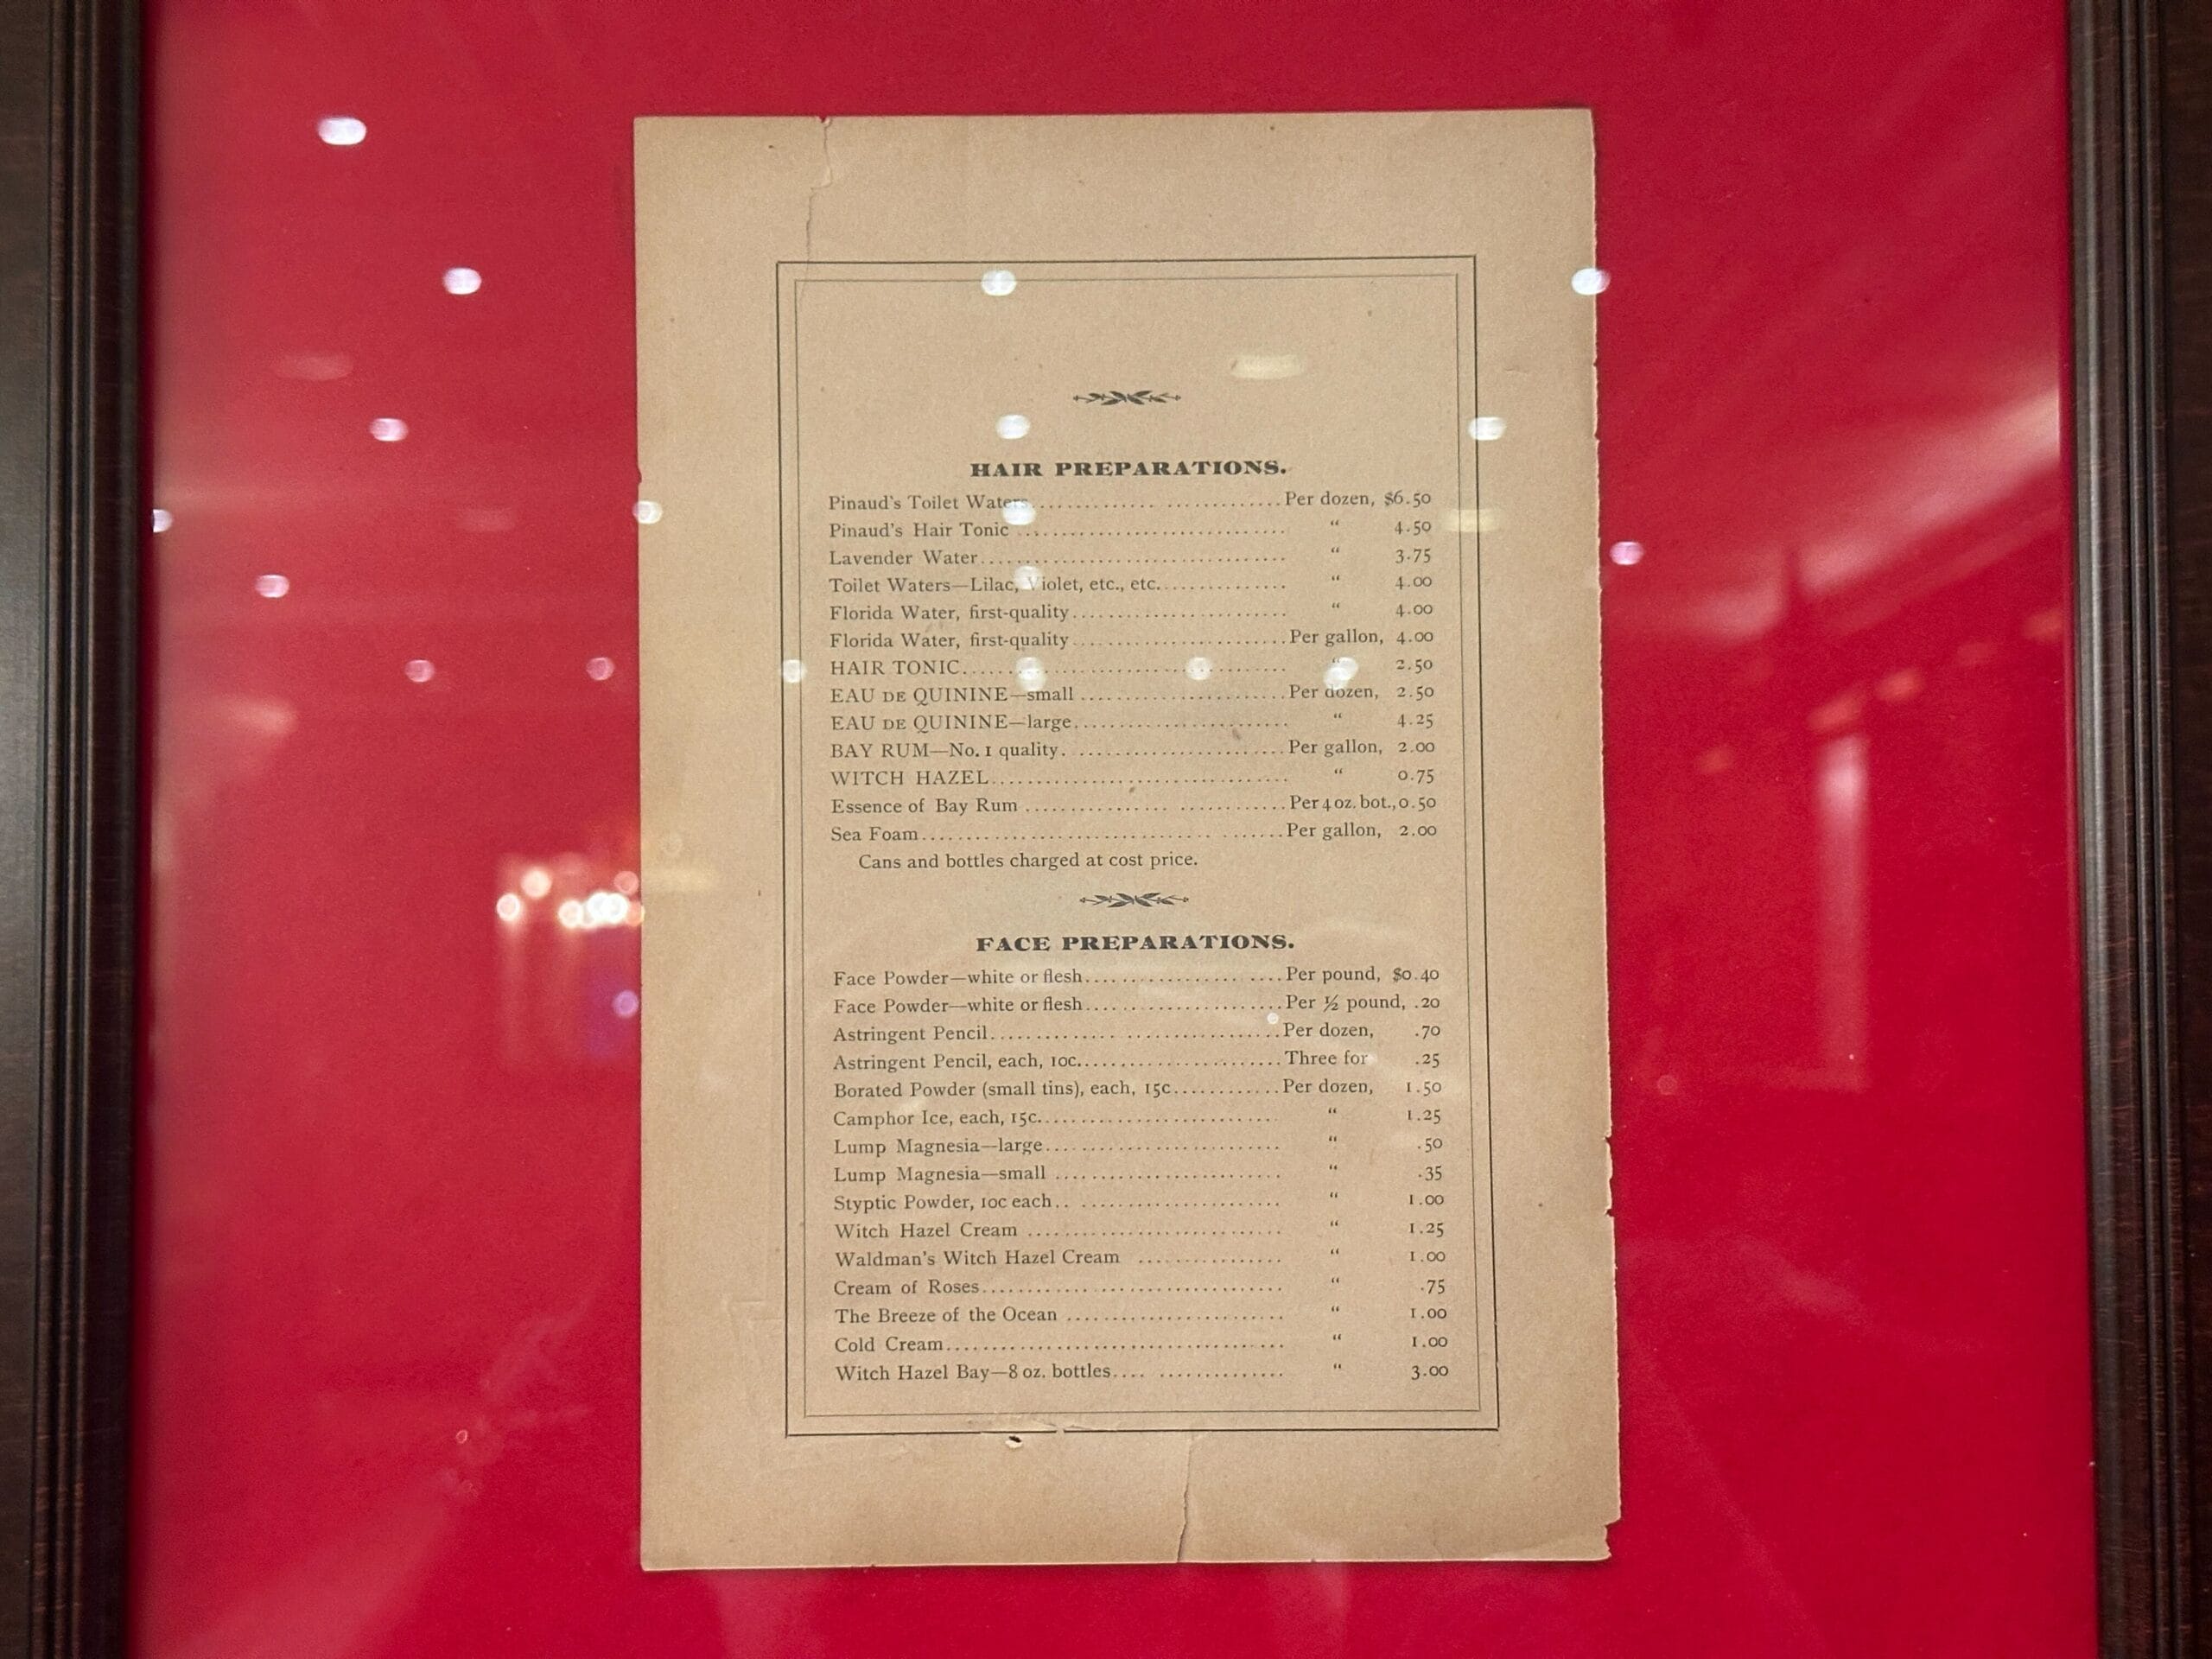 HAIR PREPARATIONS.
Pinaud's Toilet Waters..............................Per dozen, $6.50
Pinaud's Hair Tonic .............................. “ 4.50
Lavender Water.................................. “ 3.75
Toilet Waters—Lilac, Violet, etc., etc............... “ 4.00
Florida Water, first-quality........................ “ 4.00
Florida Water, first-quality........................Per gallon, 4.00
HAIR TONIC.................................... “ 2.50
EAU DE QUININE—small .......................Per dozen, 2.50
EAU DE QUININE—large........................ “ 4.25
BAY RUM—No. 1 quality.........................Per gallon, 2.00
WITCH HAZEL................................. “ 0.75
Essence of Bay Rum .............................Per 4 oz. bot., 0.50
Sea Foam........................................Per gallon, 2.00
Cans and bottles charged at cost price.
FACE PREPARATIONS.
Face Powder—white or flesh......................Per pound, $0.40
Face Powder—white or flesh......................Per ½ pound, .20
Astringent Pencil................................Per dozen, .70
Astringent Pencil, each, 10c......................Three for .25
Borated Powder (small tins), each, 15c............Per dozen, 1.50
Camphor Ice, each, 15c.......................... “ 1.25
Lump Magnesia—large.......................... “ .50
Lump Magnesia—small ......................... “ .35
Styptic Powder, 10c each........................ “ 1.00
Witch Hazel Cream ............................ “ 1.25
Waldman's Witch Hazel Cream ................ “ 1.00
Cream of Roses................................. “ .75
The Breeze of the Ocean ........................ “ 1.00
Cold Cream..................................... “ 1.00
Witch Hazel Bay—8 oz. bottles.................. “ 3.00